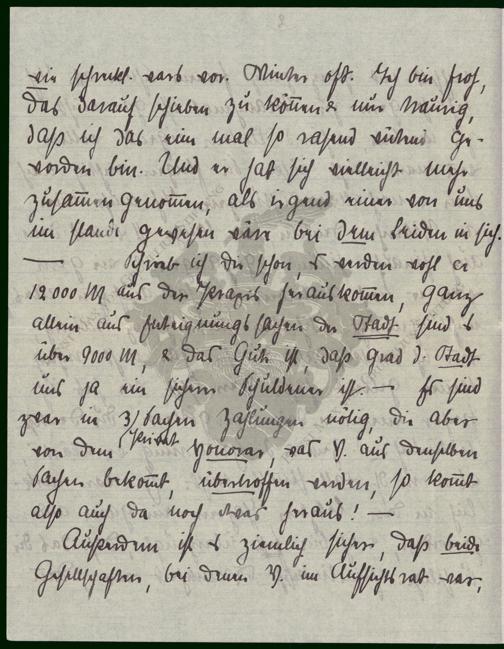 ein schreckl. war's vor. Winter oft. Ich bin froh,
das darauf schieben zu können & nur traurig,
daß ich das ein mal so rasend wütend ge-
worden bin. Und er hat sich vielleicht mehr
zusammen genommen, als irgend einer von uns
im stande gewesen wäre bei dem Leiden in sich.
— Schrieb ich dir schon, es werden wohl ca
12000 M aus der Praxis herauskommen, ganz
allein aus Enteignungssachen der Stadt sind es
über 9000 M, & das Gute ist, daß grad d. Stadt
uns ja ein sicherer Schuldener ist. — Es sind
zwar in 3 Sachen Zahlungen nötig, die aber
von dem Privat Honorar, was V. aus denselben
Sachen bekommt, übertroffen werden, so kommt
also auch da noch etwas heraus! —
Außerdem ist es ziemlich sicher, daß beide
Gesellschaften, bei denen V. im Aufsichtsrat war,